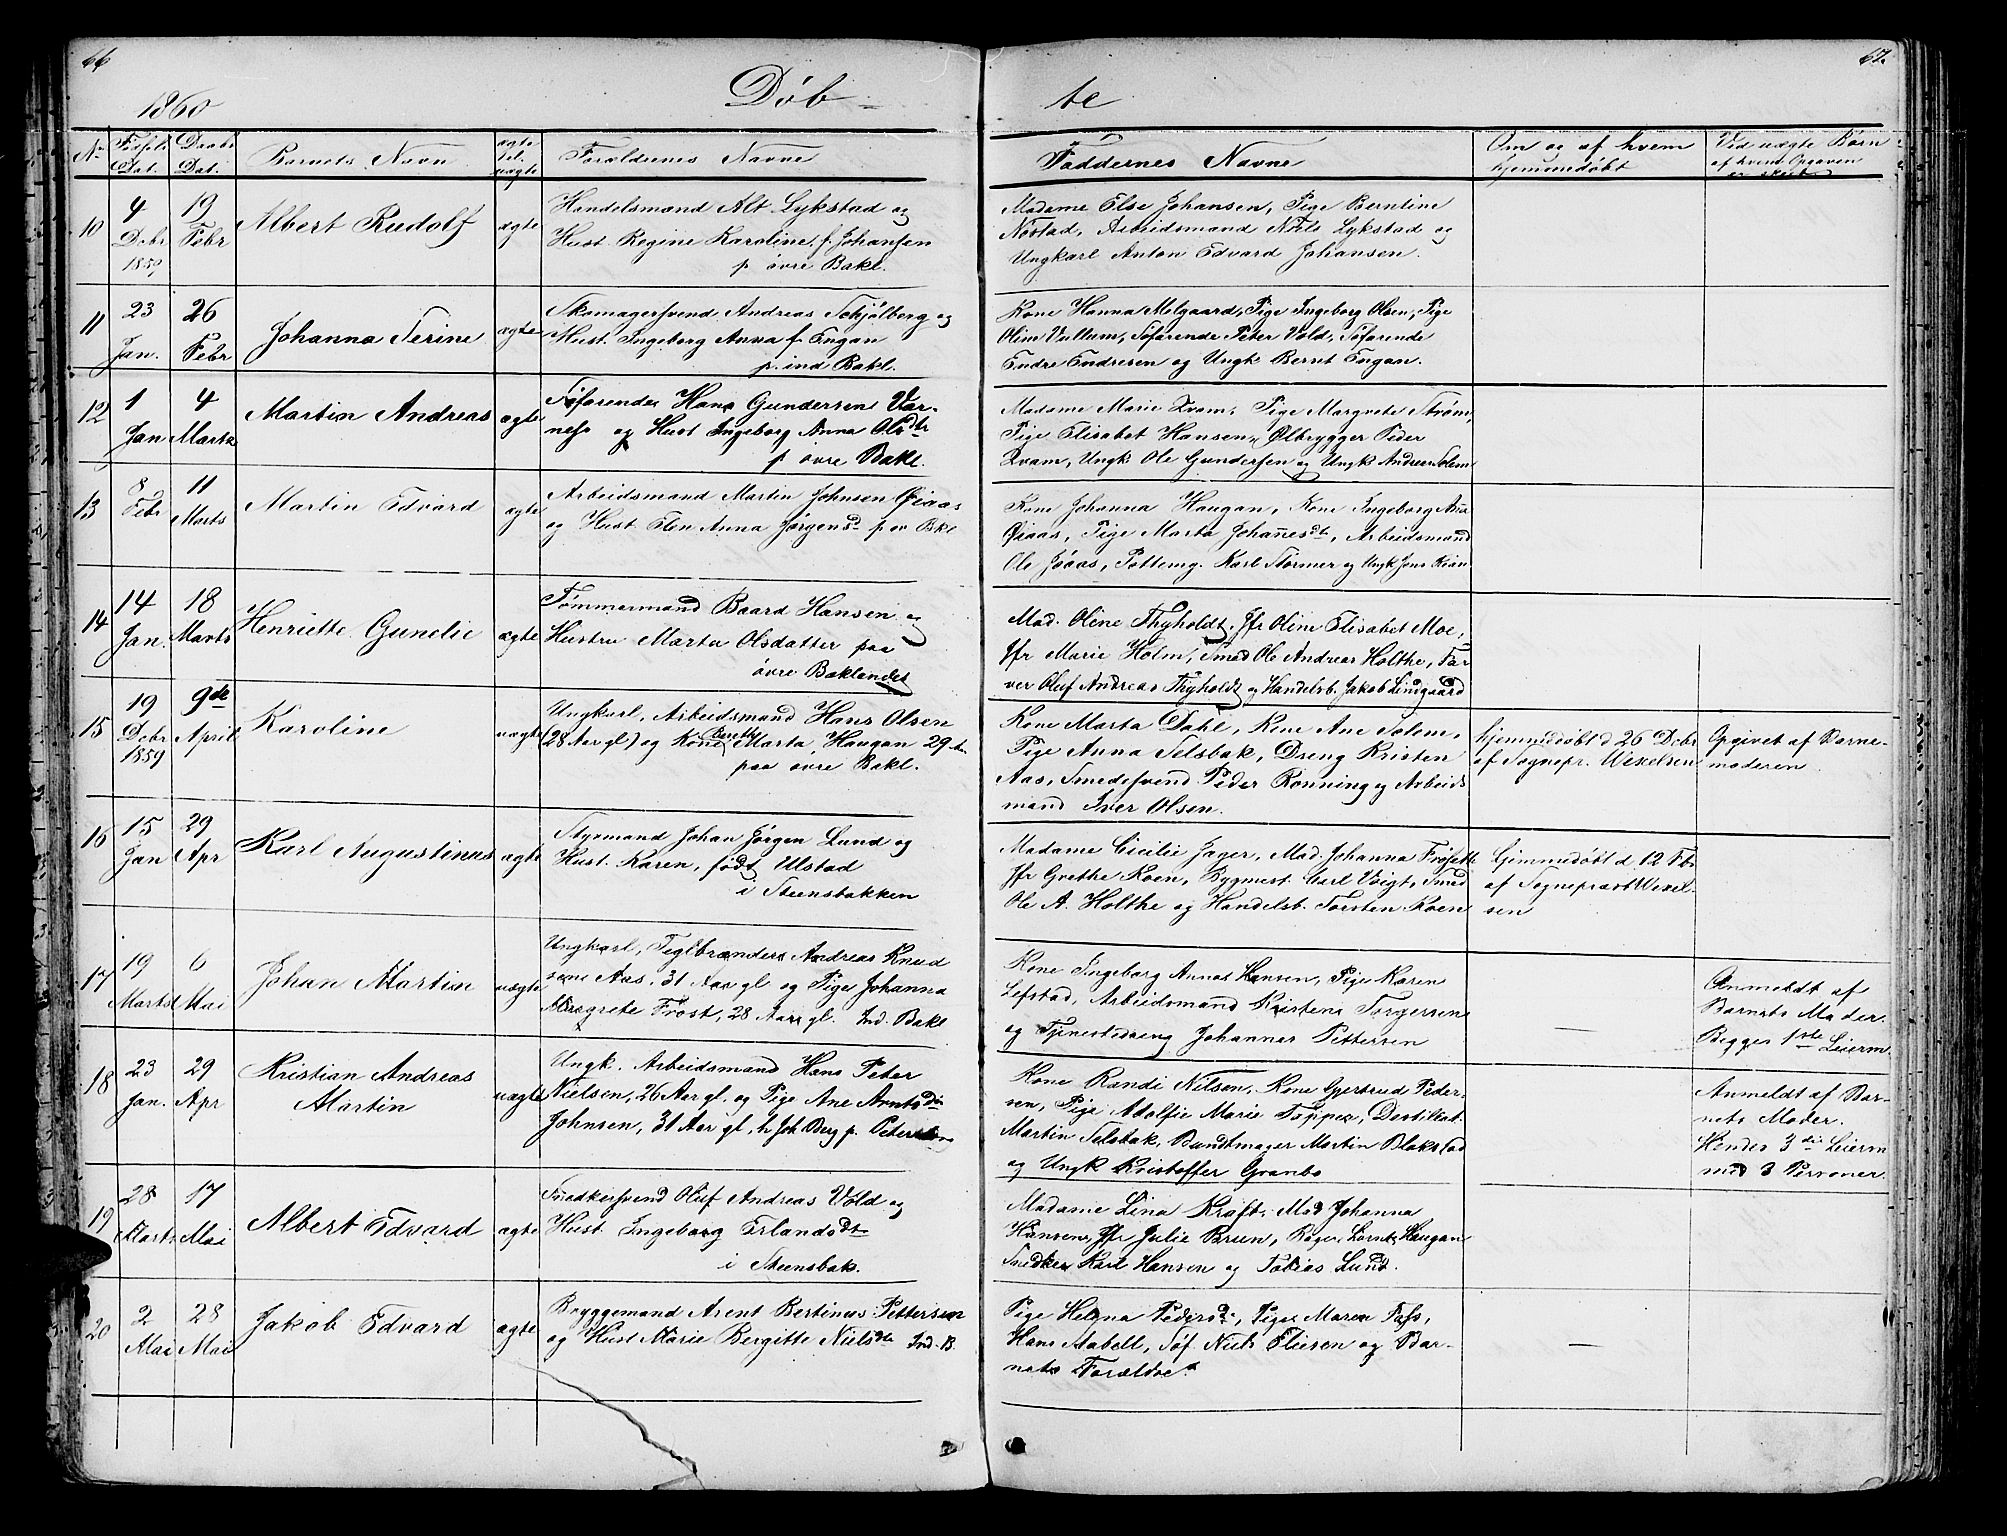 66
1860
Døb-
te
67.
No
Fødsels Dat.
Daabs Dat.
Barnets Navn
ægte el. uægte
Forældrenes Navne
Faddernes Navne
Om og af hvem hjemmedøbt
Ved uægte Børn af hvem Opgaven er skeet
10
4 Debr 1859
19 Febr
Albert Rudolf
ægte
Handelsmand Alt. Lykstad og
Hust. Regine Karoline, f. Johansen
p. øvre Bakl.
Madame Else Johansen, Pige Berntine
Nøstad, Arbeidsmand Niels Lykstad og
Ungkarl Anton Edvard Johansen.
11
23 Jan.
26 Febr
Johanna Serine
ægte
Skomagersvend Andreas Schjølberg og
Hust. Ingeborg Anna f. Engan
p. ind Bakl.
Kone Hanna Melgaard, Pige Ingeborg Olsen, Pige
Oline Vullum, Søfarende Peter Vold, Søfarende
Endre Endresen og Ungk Bernt Engan.
12
1 Jan
4 Marts
Martin Andreas
ægte
Søfarende Hans Gundersen Vær-
ness og Hust Ingeborg Anna Olsdtr
p øvre Bakl.
Madame Marie Kvam, Pige Margrete Strøm,
Pige Elisabet Hansen, Ølbrygger Peder
Kvam, Ungk. Ole Gundersen og Ungk Andreas Solem
13
8 Febr
11 Marts
Martin Edvard
ægte
Arbeidsmand Martin Johnsen Øiaas
og Hust Elen Anna Jørgensd. p øv Bkl
Kone Johanna Haugan, Kone Ingeborg Ana
Øiaas, Pige Marta Johannesdt, Arbeidsmand
Ole Jøaas, Pottemg. Karl Størmer og Ungk Jens
14
14 Jan.
18 Marts
Henriette Gunelie
ægte
Tømmermand Baard Hansen og
Hustru Marta Olsdatter paa
øvre Baklandet
Mad. Oline Thyholdt, Jfr Oline Elisabet Moe,
Jfr Marie Holm, Smed Ole Andreas Holthe, Far
ver Oluf Andreas Thyholdt og Handelsb. Jakob Lindgaard
15
19 Debr 1859
9de April
Karoline
uægte
Ungkarl, Arbeidsmand Hans Olsen
(28 Aar gl) og Kone Bereth Marta Haugan 29 Aa
paa øvre Bakl.
Kone Marta Dahl, Kone Ane Solem,
Pige Anna Selsbak, Dreng Kristen
Aas, Smedesvend Peder Rønning og Arbeids
mand Iver Olsen.
hjemmedøbt d 26 Debr
af Sognepr. Wexelsen
Opgivet af Barne-
moderen.
16
15 Jan
29 Apr
Karl Augustinus
ægte
Styrmand Johan Jørgen Lund og
Hust. Karen, født Ulstad
i Steensbakken
Madame Cicilie Jager, Mad. Johanna Frøseth
Jfr Grethe Koen, Bygmest. Carl Voigt, Smed
Ole A. Holthe og Handelsb. Torsten Koen
hjemmedøbt d. 12 Fbr
af Sogneprest Wexel-
sen
17
19 Marts
6 Mai
Johan Martin
uægte
Ungkarl, Teglbrænder Andreas Knud
sen Aas, 31 Aar gl og Pige Johanna
Margrete Frost, 28 Aar gl. Ind. Bakl
Kone Ingeborg Anna Hansen, Pige Karen
Lefstad, Arbeidsmand Kristen Torgersen
og Tjenestedreng Johannes Pettersen
—
Anmeldt af
Barnets Moder.
Begges 1ste Leierm.
18
23 Jan.
29 Apr
Kristian Andreas
Martin
uægte
Ungk. Arbeidsmand Hans Peter
Nielsen, 26 Aar gl. og Pige Ane Arntsdtr
Johnsen, 31 Aar gl, h. Joh Berg p.
Kone Randi Nilsen, Kone Gjertrud Peder-
sen, Pige Adolfie Marie Toppe, Destillat.
Martin Selsbak, Bundtmager Martin Blakstad
og Ungk Kristoffer Granbo
—
Anmeldt af Bar-
nets Moder.
Hendes 3die Leierm
med 3 Personer.
19
28 Marts
17 Mai
Albert Edvard
ægte
Snedkersvend Oluf Andreas Vold og
Hust. Ingeborg Erlandsdt
i Steensbak.
Madame Lina Kraft, Mad Johanna
Hansen, Jfr Julie Brun, Bøger Lornts Haugan
Snedker Karl Hansen og Tobias Lund.
20
2 Mai
28 Mai
Jakob Edvard
ægte
Bryggemand Arent Bertinus Pettersen
og Hust Marie Bergitte Nielsdtr Ind. B.
Pige Helena Pedersdr, Pige Maren Fass,
Hans Aabell, Søf. Niels Eliesen og Bar-
nets Forældre.
—